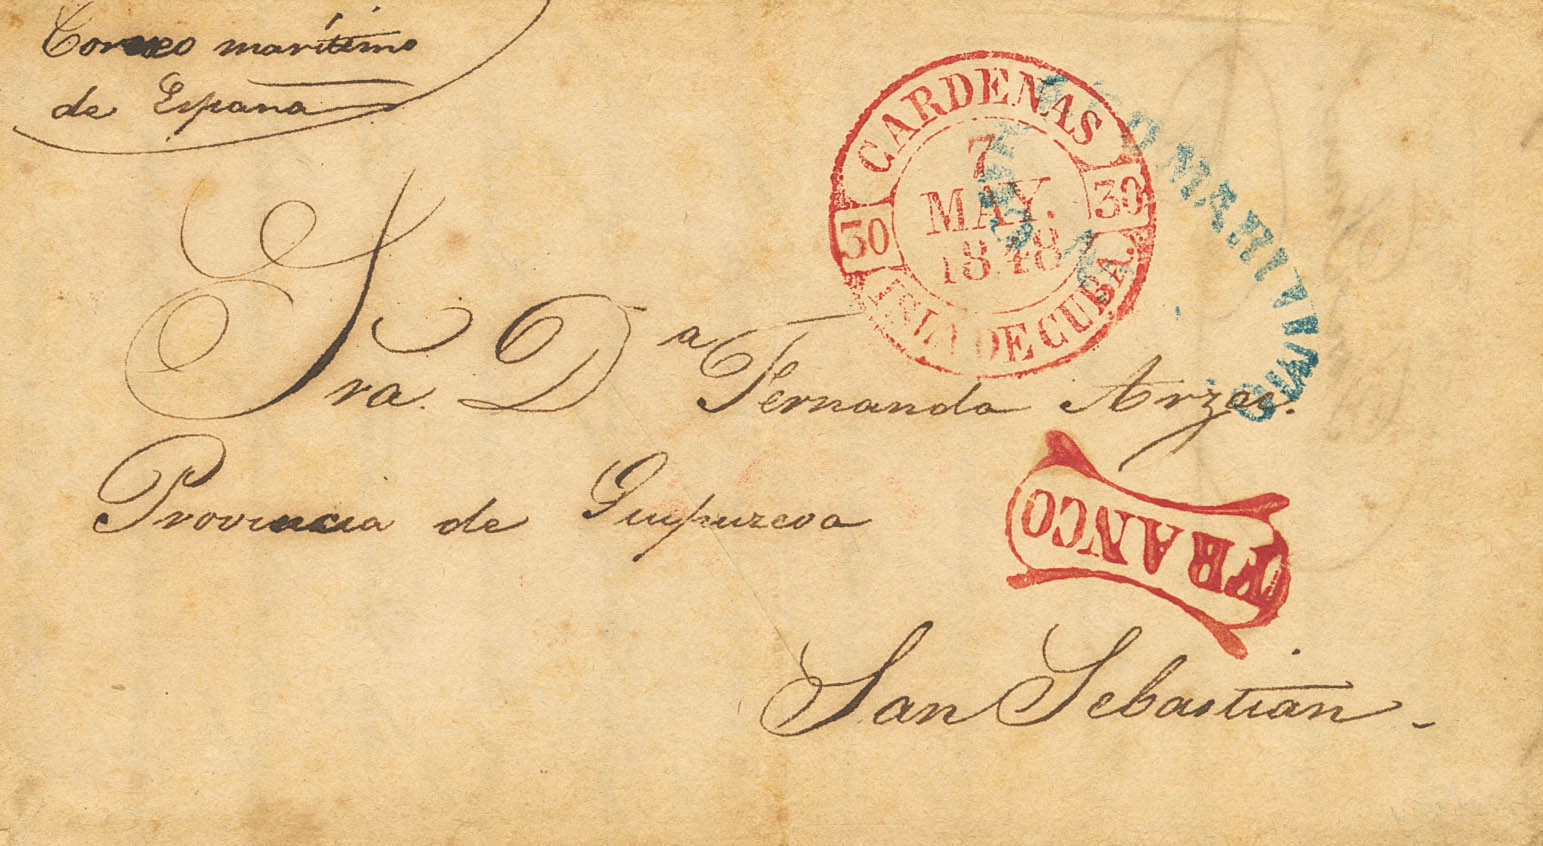 Correo marítimo
de España
CARDENAS
7
MAY.
1848
30
30
ISLA DE CUBA.
OMARITIMO
Sra. Dª Fernanda Arzac.
Provincia de Guipuzcoa
FRANCO
San Sebastián